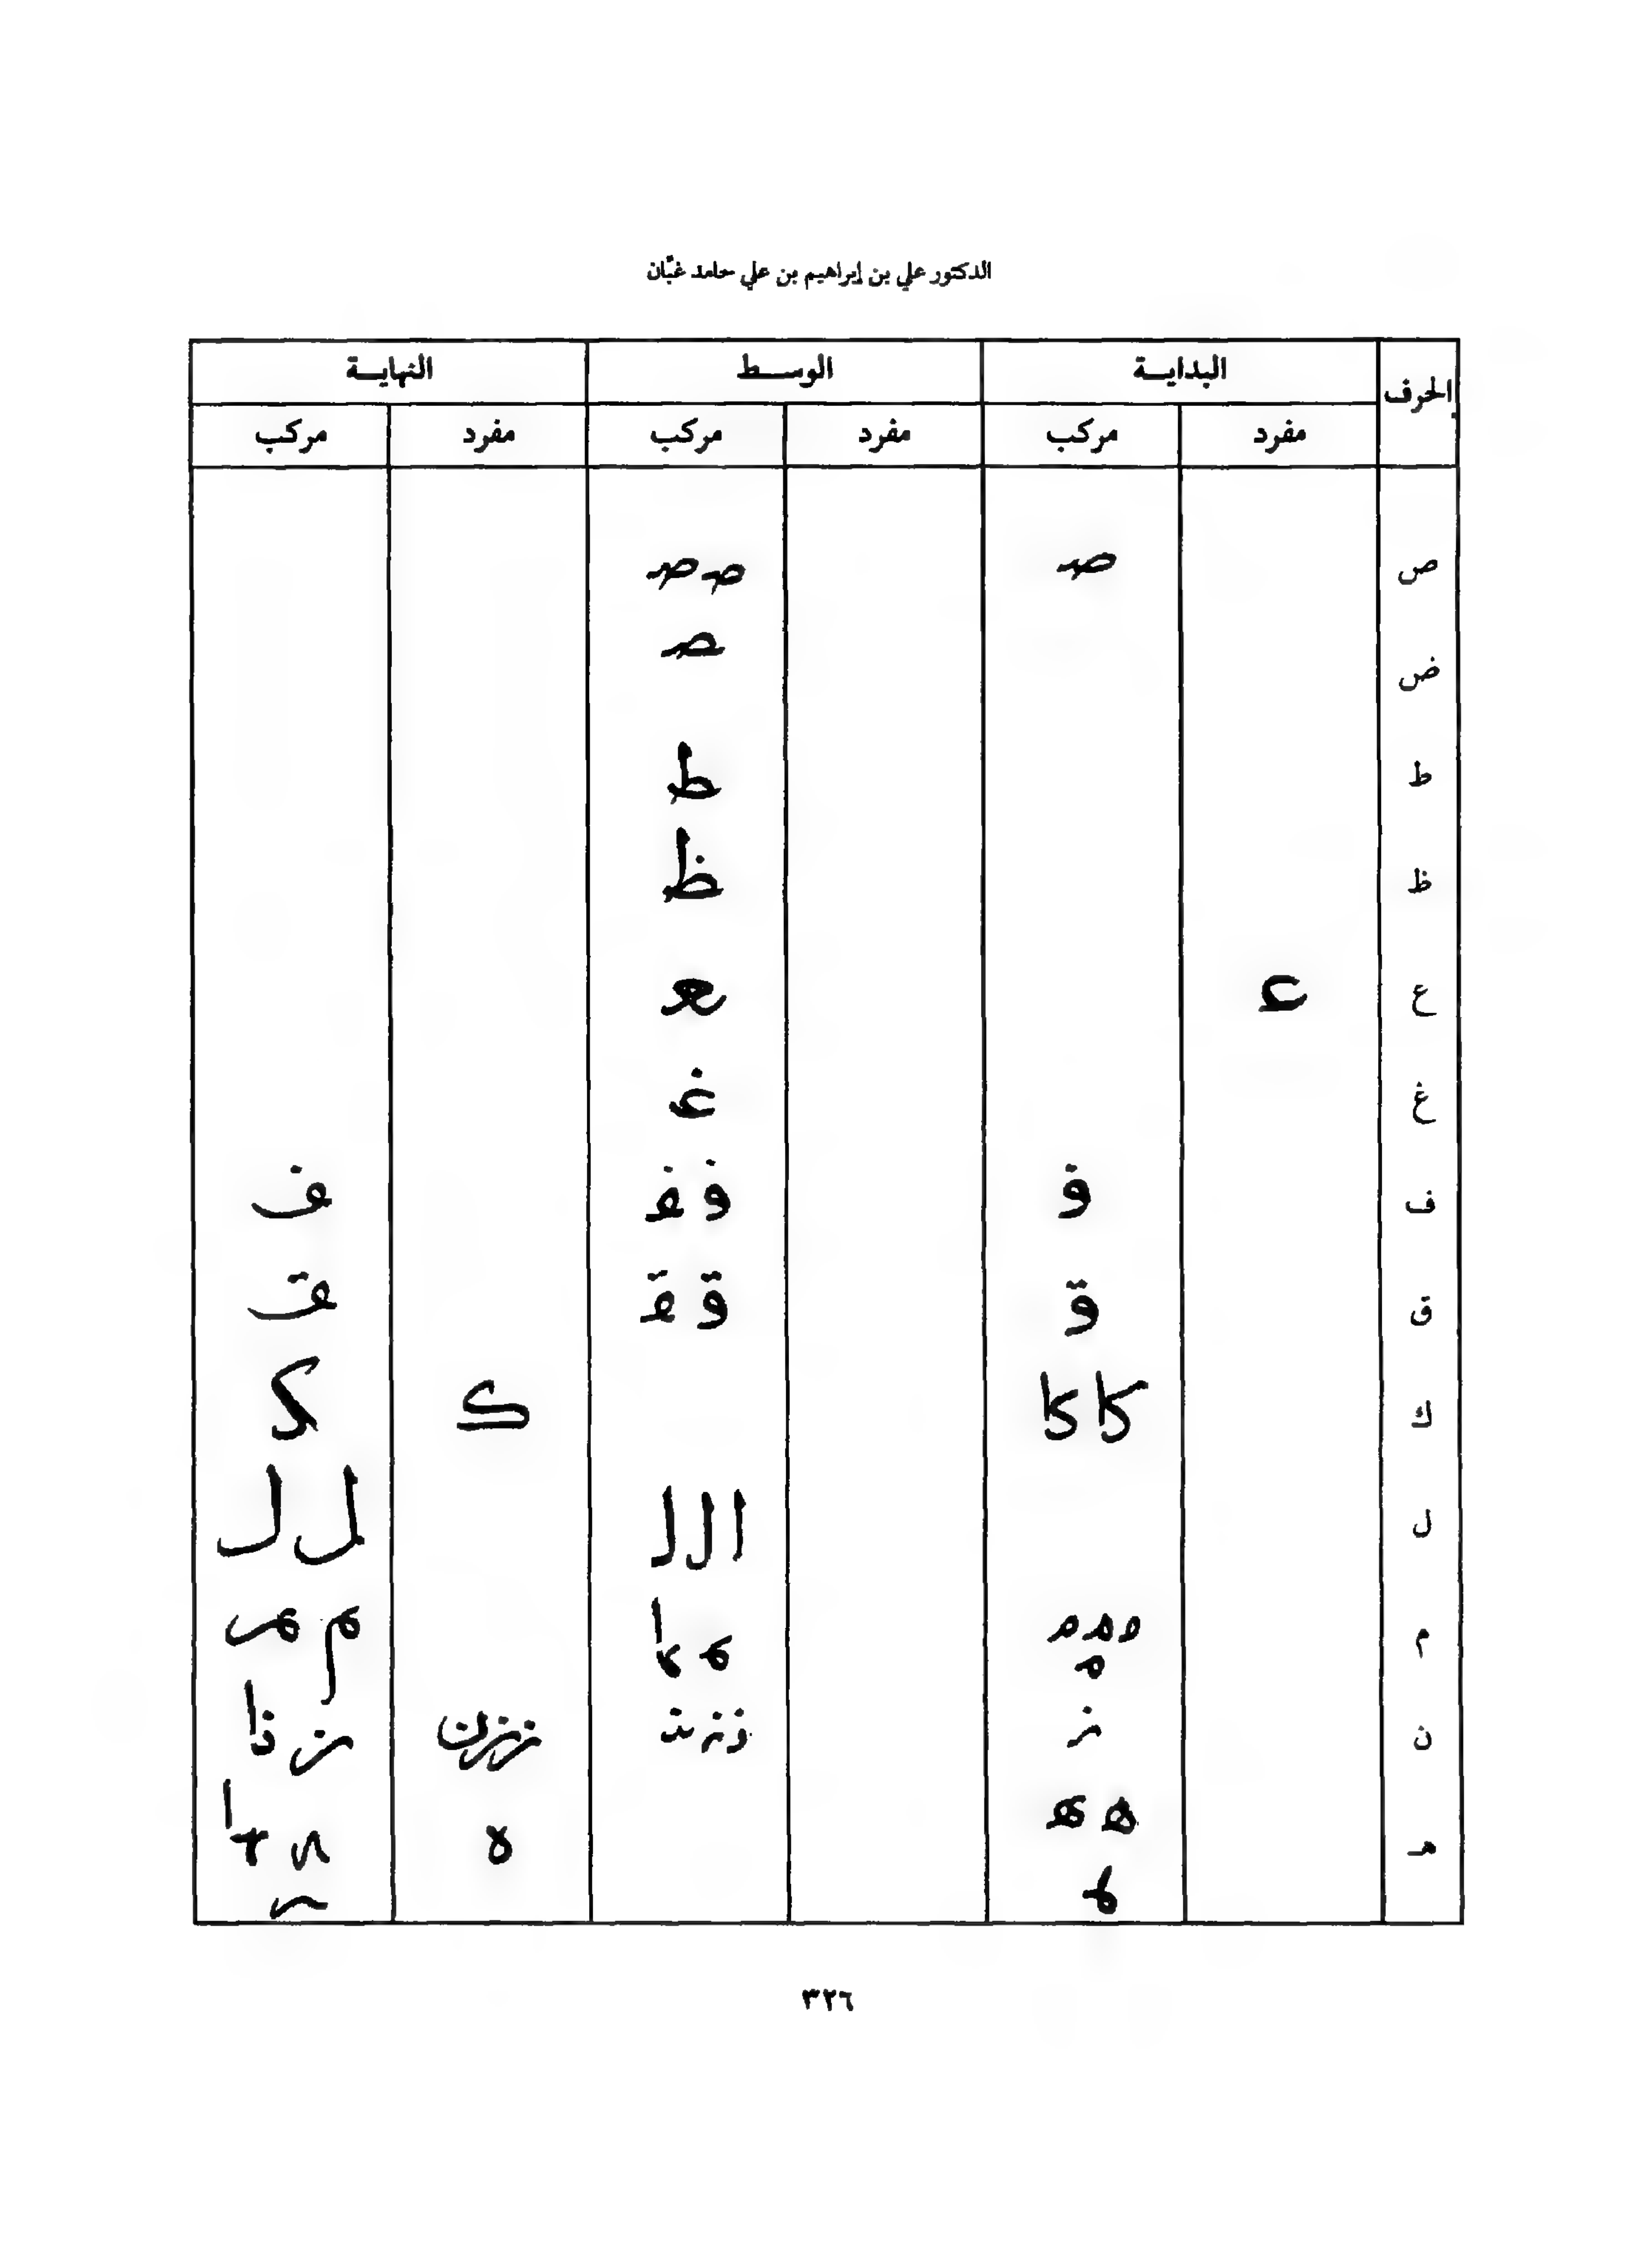 الدكتور علي بن إبراهيم بن علي حامد غبّان
الحرف البدايـة الوسـط النهايـة
مفرد مركب مفرد مركب مفرد مركب
ص صـ صـ صـ
ض صـ
ط ط
ظ ظ
ع عـ ـعـ
غ غـ
ف فـ فـ ـفـ ف
ق قـ قـ ـقـ ق
ك كا كا ك ك
ل ا لـ لـ ل ل
م مـ مـ مـ م م
مـ
ن نـ نـ نـ نـ ن ن
هـ هـ هـ ه
٣٢٦